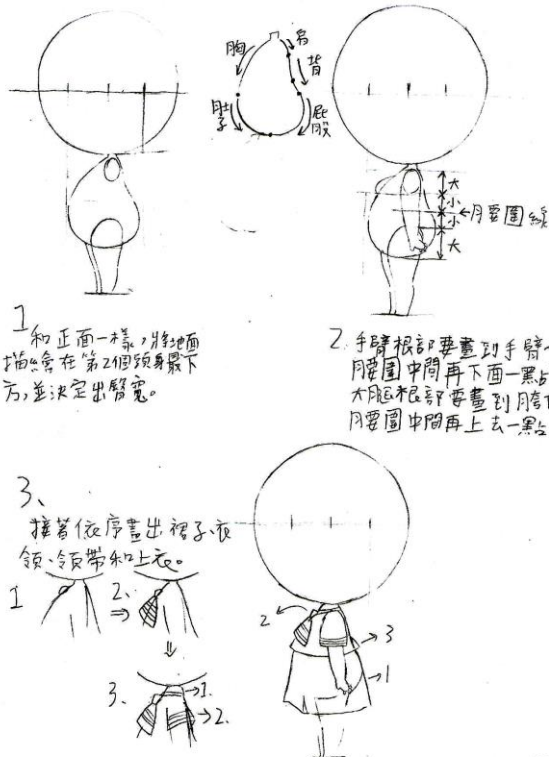 胸
肩
背
肚子
屁股
大
小
←腰圍線
小
大
1 和正面一樣,將地面
描繪在第2個頭身最下
方,並決定出臀寬。
2. 手臂根部要畫到手臂
腰圍中間再下面一點
大腿根部要畫到胯下
腰圍中間再上去一點
3、
接著依序畫出裙子、衣
領、領帶和上衣。
1
2、
⇒
⇓
3.
→1.
→2.
2
→3
→1